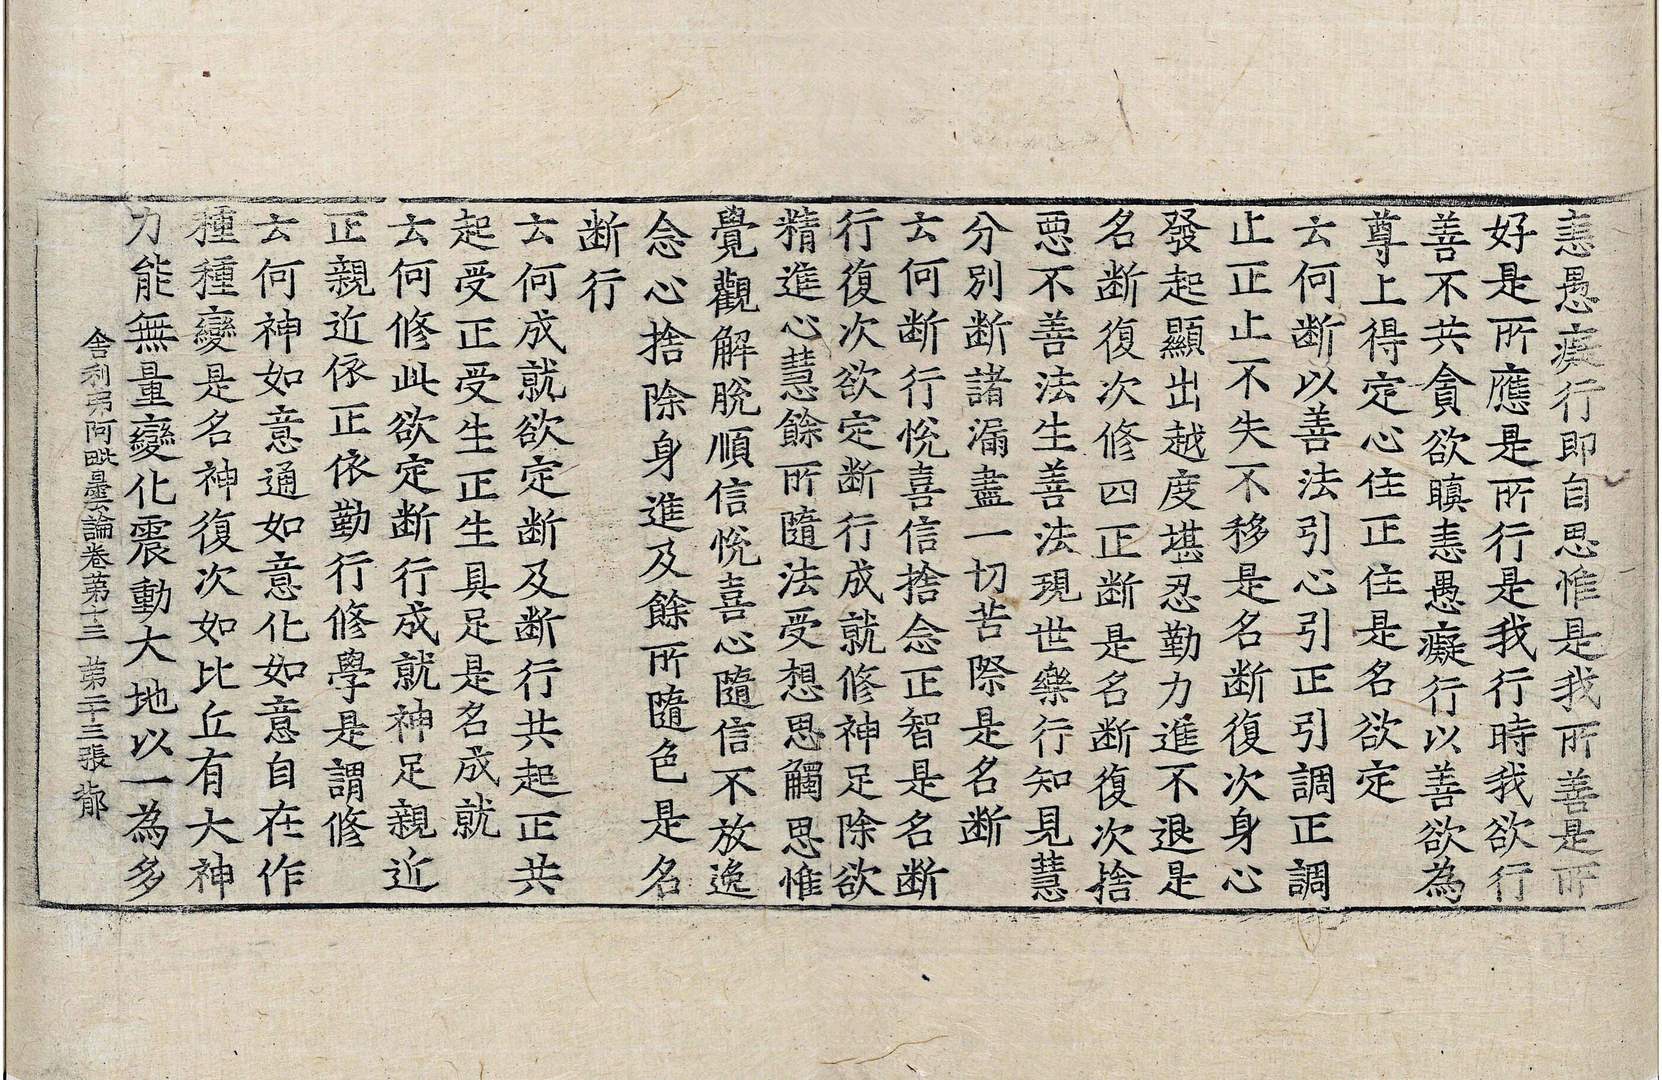 恚愚癡行即自思惟是我所善是所
好是所應是所行是我行時我欲行
善不共貪欲瞋恚愚癡行以善欲為
尊上得定心住正住是名欲定
云何断以善法引心引正引調正調
止正止不失不移是名断復次身心
發起顯出越度堪忍勤力進不退是
名断復次修四正断是名断復次捨
惡不善法生善法現世樂行知見慧
分別断諸漏盡一切苦際是名断
云何断行悅喜信捨念正智是名断
行復次欲定断行成就修神足除欲
精進心慧餘所隨法受想思觸思惟
覺觀解脫順信悅喜心隨信不放逸
念心捨除身進及餘所隨色是名
断行
云何成就欲定断及断行共起正共
起受正受生正生具足是名成就
云何修此欲定断行成就神足親近
正親近依正依勤行修學是謂修
云何神如意通如意化如意自在作
種種變是名神復次如比丘有大神
力能無量變化震動大地以一為多
舍利弗阿毗曇論卷第十三 第二十三張